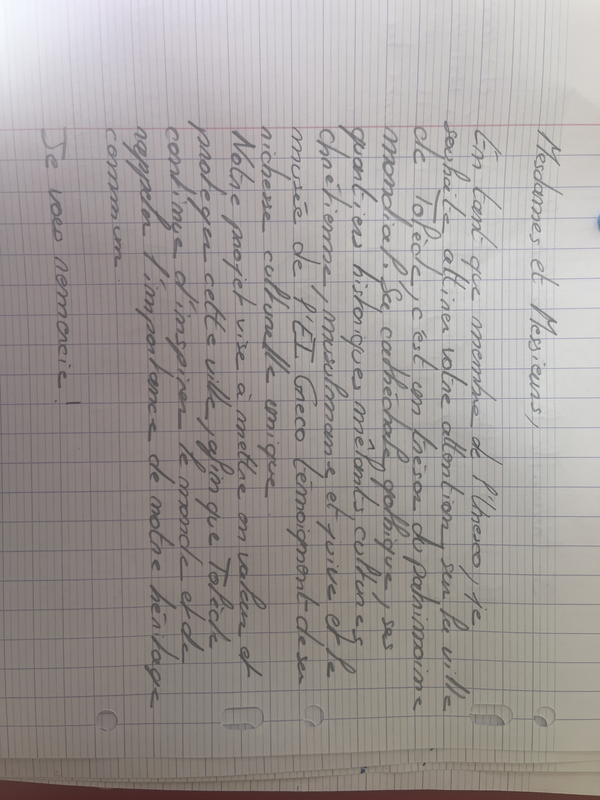 Mesdames et Messieurs,
En tant que membre de l'Unesco, je
souhaite attirer votre attention sur la ville
de Tolède, c'est un trésor du patrimoine
mondial. Sa cathédrale gothique, ses
quartiers historiques mêlants cultures
chrétienne, musulmane et juive et le
musée de l'El Greco témoignent de sa
richesse culturelle unique
Notre projet vise à mettre en valeur et
protéger cette ville, afin que Tolède
continue d'inspirer le monde et de
rappeler l'importance de notre héritage
commun
Je vous remercie!